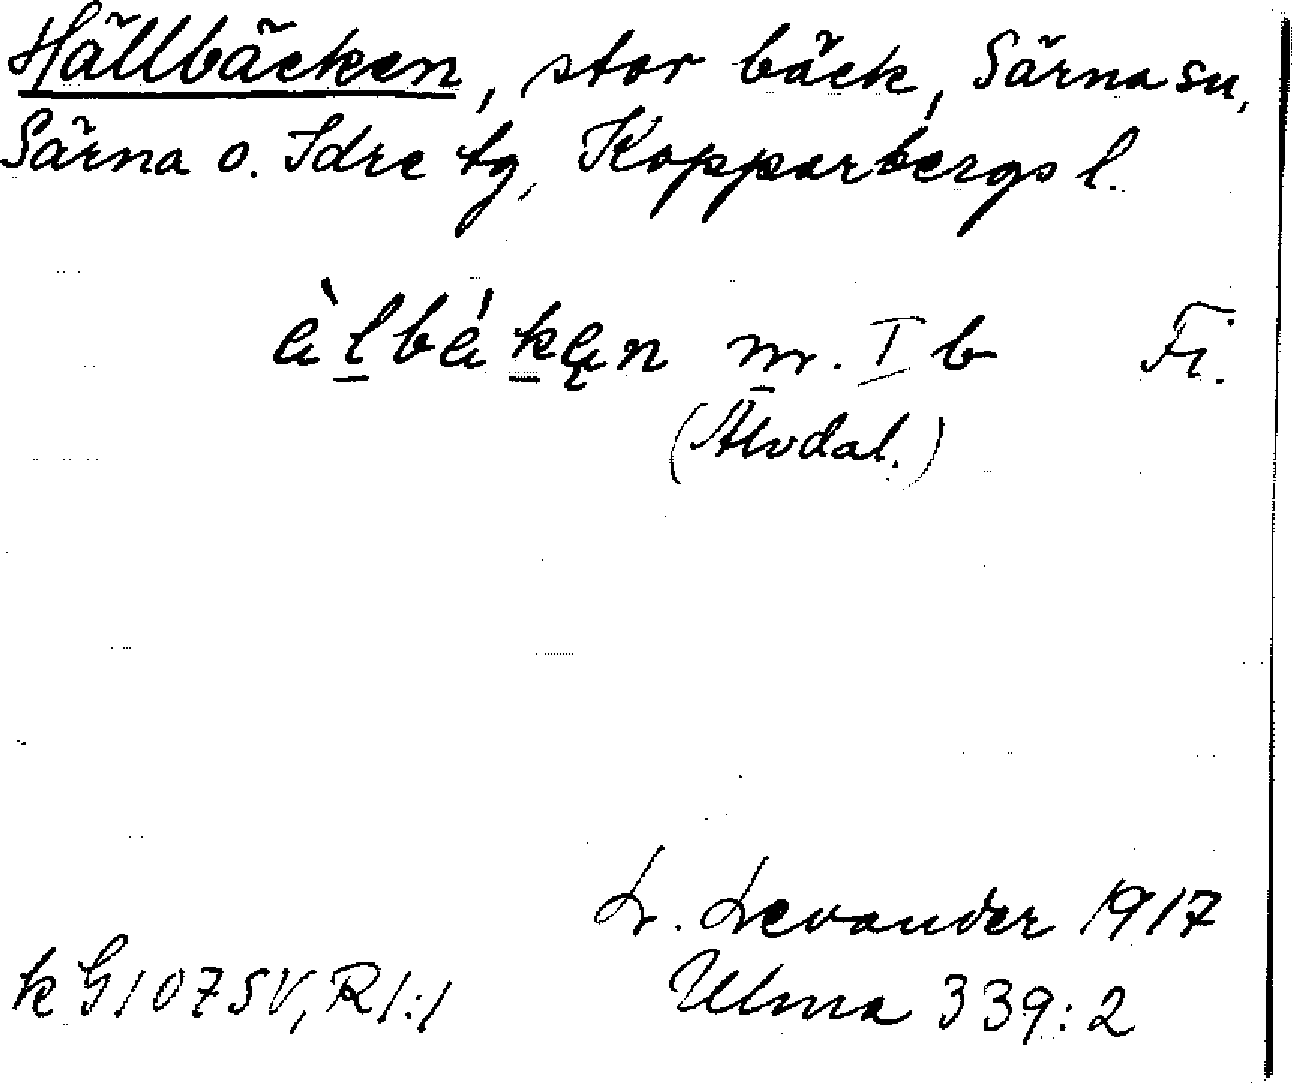 Hällbäcken, stor bäck, Särna sn,
Särna o. Idre tg, Kopparbergs l.
ä̀lbä́kęn m. I b Fi.
(Älvdal.)
L. Levander 1917
k G107SV, R1:1 Ulma 339:2